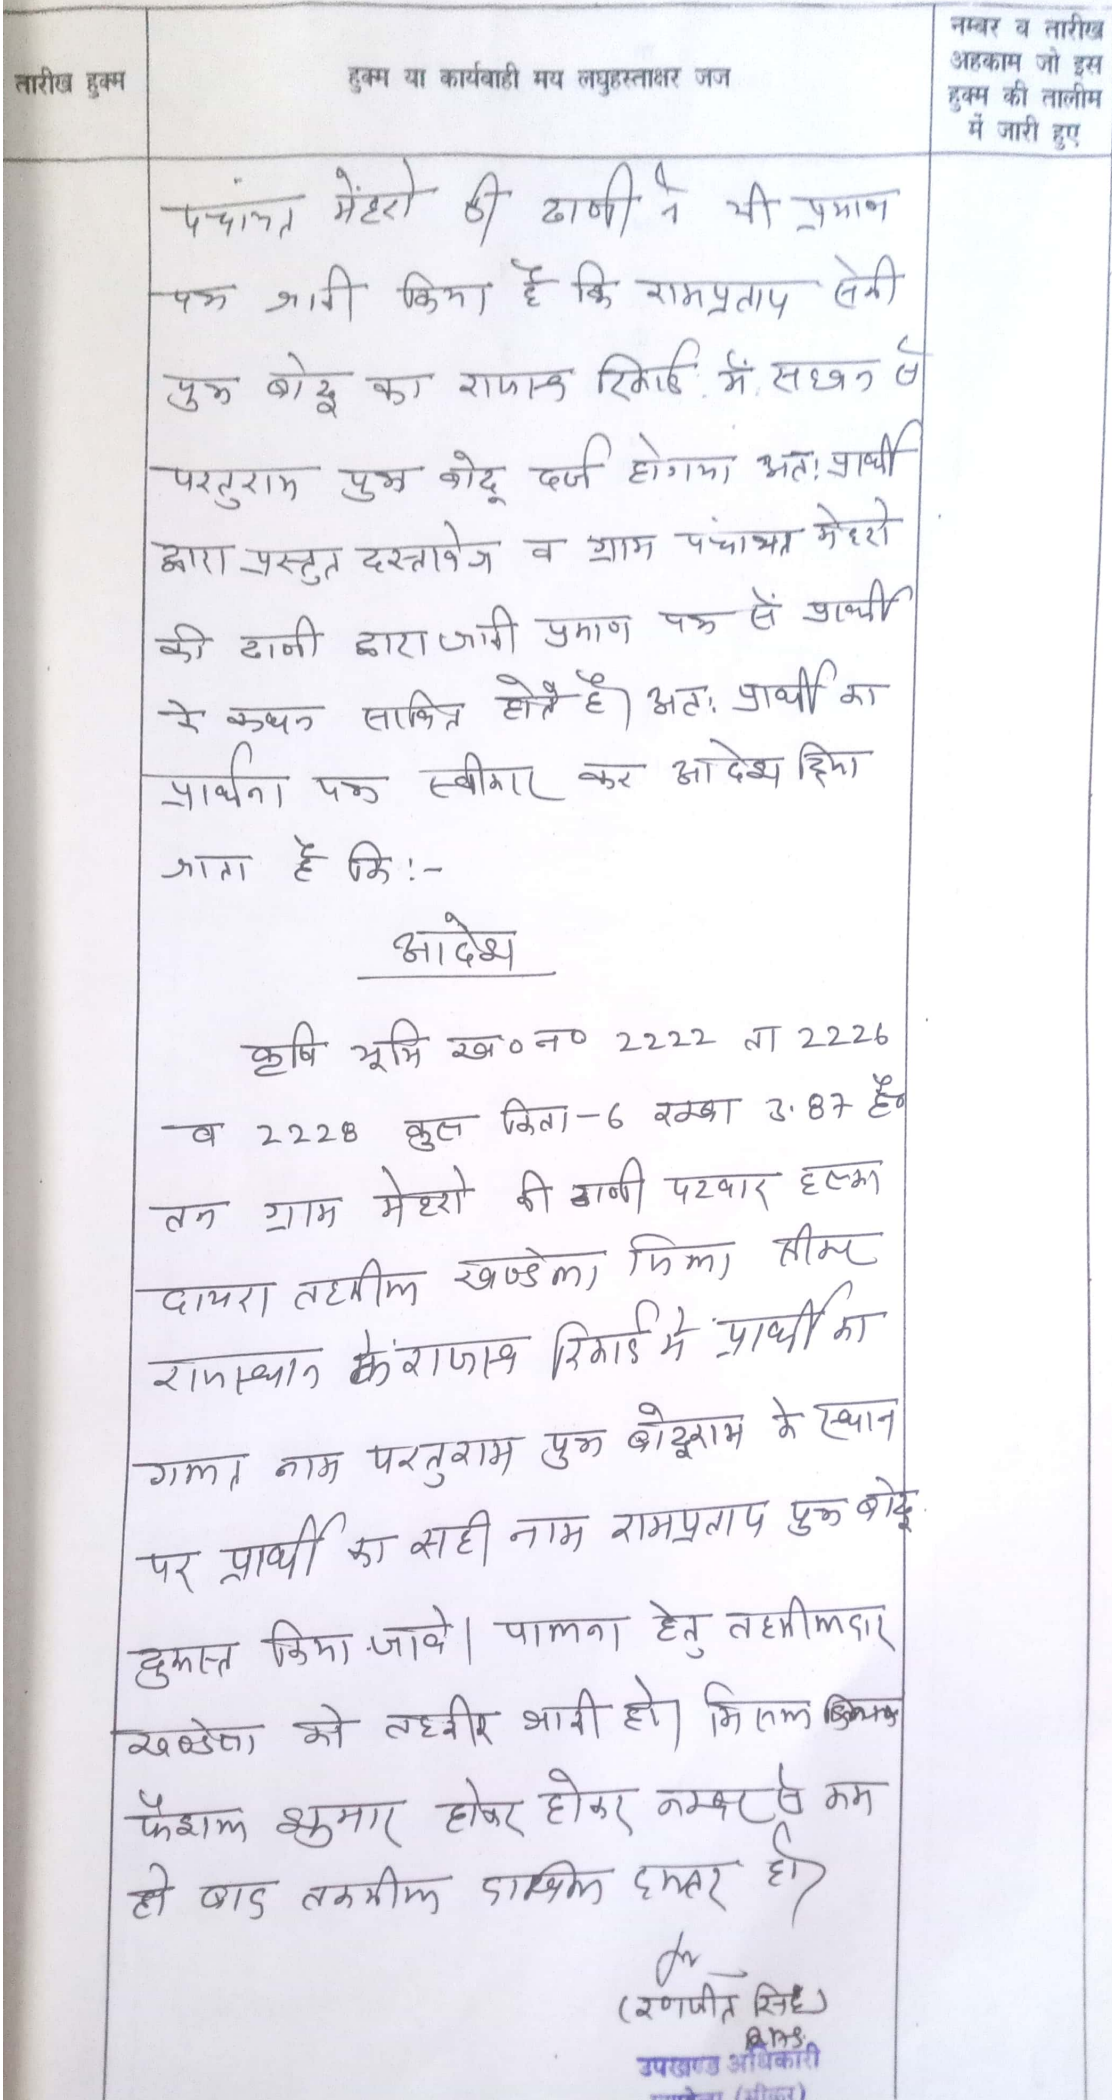 तारीख हुक्म
हुक्म या कार्यवाही मय लघुहस्ताक्षर जज
नम्बर व तारीख
अहकाम जो इस
हुक्म की तालीम
में जारी हुए
पंचायत मेंहरो की ढाणी ने भी प्रमाण
पत्र जारी किया है कि रामप्रताप सैनी
पुत्र बोदू का राजस्व रिकार्ड में से
परतुराम पुत्र बोदू दर्ज होगया अतः प्रार्थी
द्वारा प्रस्तुत दस्तावेज व ग्राम पंचायत मेहरो
की ढानी द्वारा जारी प्रमाण पत्र सें प्रार्थी
के कथन साबित होते है। अतः प्रार्थी का
प्रार्थना पत्र स्वीकार कर आदेश दिया
जाता है कि:-
आदेश
कृषि भूमि ख० न० 2222 ता 2226
व 2228 कुल किता-6 रकबा 3.87 है०
तन ग्राम मेहरो की ढाणी पटवार हल्का
दायरा तहसील खण्डेला जिला सीकर
राजस्थान के राजस्व रिकार्ड मे प्रार्थी का
गलत नाम परतुराम पुत्र बोदूराम के स्थान
पर प्रार्थी का सही नाम रामप्रताप पुत्र बोदू
दुरूस्त किया जावे। पालना हेतु तहसीलदार
खण्डेला को तहरीर जारी हो। मिसल
फैशल शुमार होकर होकर नम्बर से कम
हो बाद तकमील दाखिल दफ्तर हो।
(रणजीत सिंह)
R.A.S.
उपखण्ड अधिकारी
खण्डेला (सीकर)